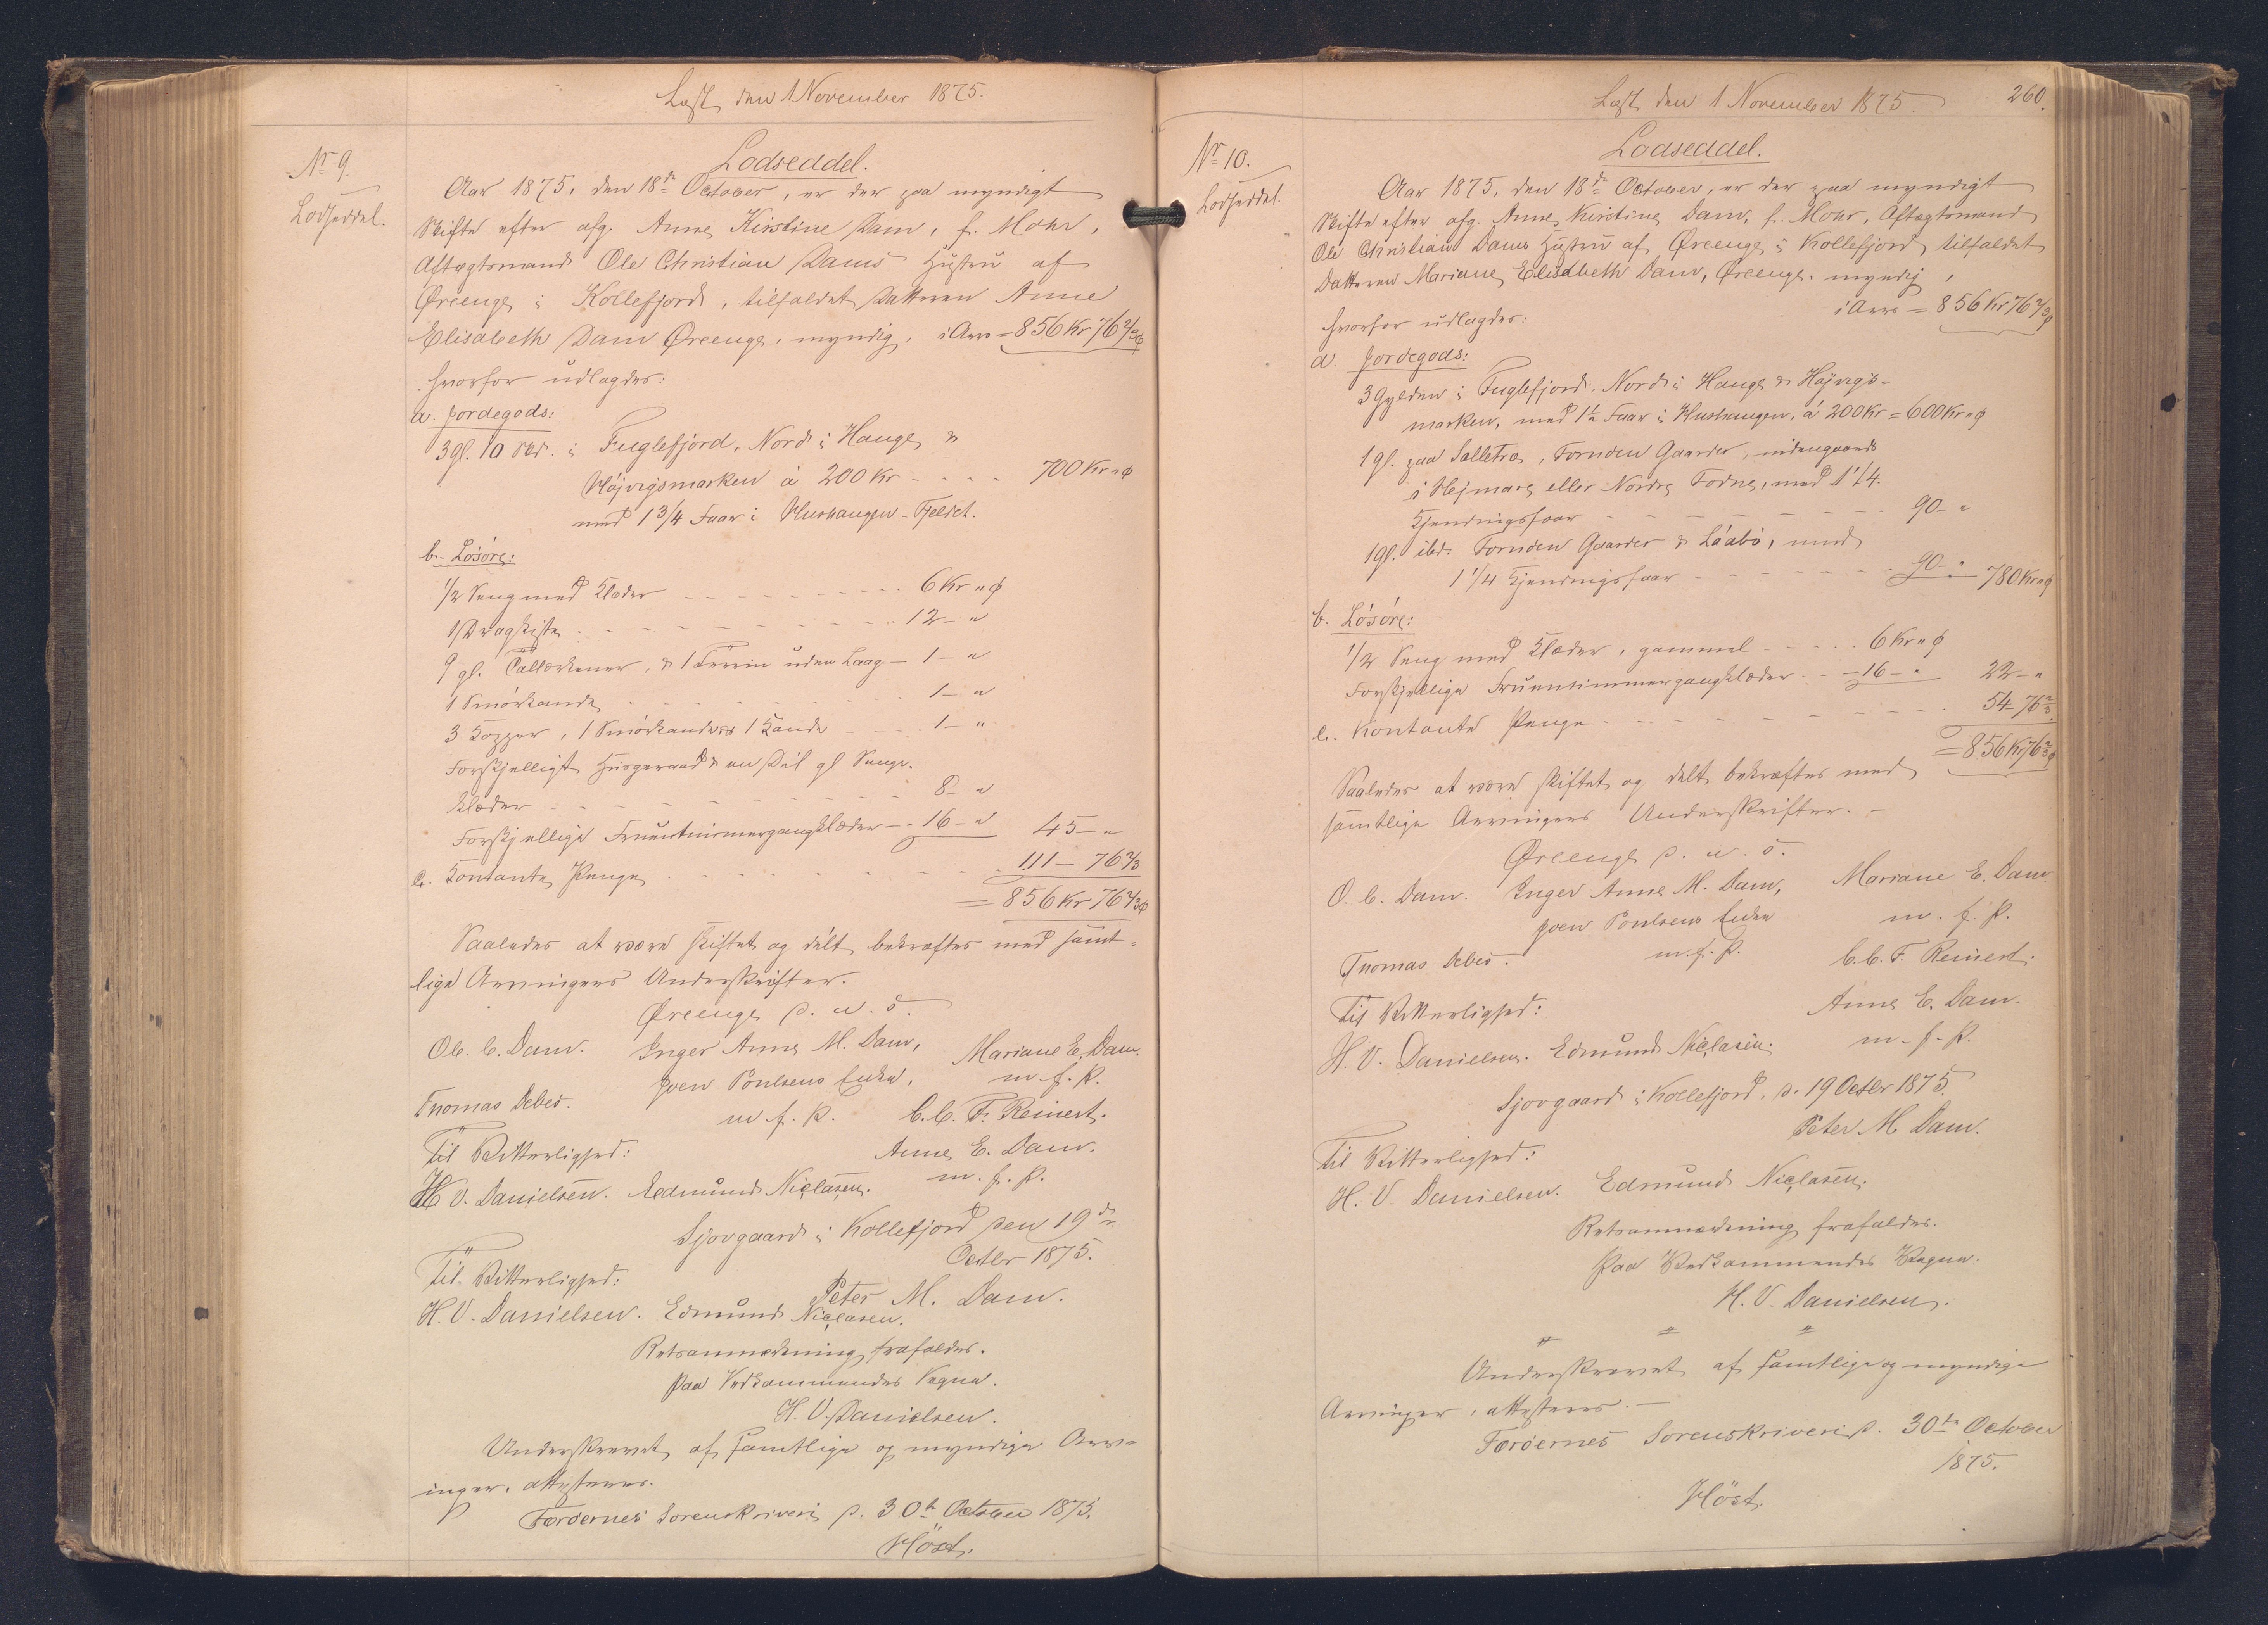 Læst den 1 November 1875.
No 9.
Lodseddel.
Lodseddel.
Aar 1875, den 18de October, er der paa myndigt
Skifte efter afg. Anne Kirstine Dam, f. Mohr,
Aftægtsmand Ole Christian Dams Hustru af
Øreenge i Kollefjord, tilfaldet Datteren Anne
Elisabeth Dam Øreenge, myndig, i Arv = 856 Kr 76 2/3 ø
hvorfor udlagdes:
a. Jordegods:
3 gl. 10 Sk. i Fuglefjord, Nord i Hauge &
Højvigsmarken á 200 Kr - - - - 700 Kr " ø
med 1 3/4 Faar i Hushaugen-Fjeldet.
b. Løsøre:
1/2 Seng med Klæder - - - - 6 Kr " ø
1 Dragkiste - - - - 12 - "
9 gl. Tallerkener, & 1 Terrin uden Laag - 1 - "
1 Smørkande - - - - 1 - "
3 Kopper, 1 Smørkande & 1 Kande - - - 1 - "
Forskjelligt Husgeraad & en Del gl Senge-
klæder - - - - 8 - "
Forskjellige Fruentimmergangklæder - - 16 - " 45 - "
c. Kontante Penge - - - - 111 - 76 2/3
= 856 Kr 76 2/3 ø
Saaledes at være skiftet og delt bekræftes med samt-
lige Arvingers Underskrifter.
Øreenge d. u. s.
Ole C. Dam. Inger Anne M. Dam, Mariane E. Dam.
Joen Poulsens Enke, m. f. P.
Thomas Debes. m. f. P. C. C. F. Reinert.
Til Vitterlighed: Anne E. Dam.
H. V. Danielsen. Edmund Niclasen. m. f. P.
Sjovgaard i Kollefjord den 19de
Octbr 1875.
Til Vitterlighed:
Peter M. Dam.
H. V. Danielsen. Edmund Niclasen.
Retsanmærkning frafaldes.
Paa Vedkommendes Vegne.
H. V. Danielsen.
Underskrevet af samtlige og myndige Arv-
inger, attesteres.
Færøernes Sorenskriveri d. 30te October 1875.
Høst.
Læst den 1 November 1875.
260.
No 10.
Lodseddel.
Lodseddel.
Aar 1875, den 18de October, er der paa myndigt
Skifte efter afg. Anne Kirstine Dam, f. Mohr, Aftægtsmand
Ole Christian Dams Hustru af Øreenge i Kollefjord tilfaldet
Datteren Mariane Elisabeth Dam, Øreenge, myndig,
i Arv = 856 Kr 76 2/3 ø
hvorfor udlagdes:
a. Jordegods:
3 Gylden i Fuglefjord, Nord i Hauge & Højvigs-
marken, med 1 1/2 Faar i Hushaugen, á 200 Kr = 600 Kr " ø
1 gl. paa Selletræ, Fornden Gaarder, nidengaards
i Hejmare eller Nordre Todnes, med 1 1/4
Kjendingsfaar - - - - 90 - "
1 gl. ibd. Fornden Gaarder & Láabø, med
1 1/4 Kjendingsfaar - - - - 90 - " 780 Kr " ø
b. Løsøre:
1/2 Seng med Klæder, gammel - - - - 6 Kr " ø
Forskjellige Fruentimmergangklæder - - 16 - " 22 - "
c. Kontante Penge - - - - 54 - 76 2/3
= 856 Kr 76 2/3 ø
Saaledes at være skiftet og delt bekræftes med
samtlige Arvingers Underskrifter. -
Øreenge d. u. s.
O. C. Dam. Inger Anne M. Dam, Mariane E. Dam
Joen Poulsens Enke m. f. P.
m. f. P.
Thomas Debes. C. C. F. Reinert.
Til Vitterlighed: Anne E. Dam.
H. V. Danielsen. Edmund Niclasen. m. f. P.
Sjovgaard i Kollefjord, d. 19 Octbr 1875
Peter M Dam.
Til Vitterlighed:
H. V. Danielsen. Edmund Niclasen.
Retsanmærkning frafaldes.
Paa Vedkommendes Vegne:
H. V. Danielsen.
Underskrevet af samtlige og myndige
Arvinger, attesteres. -
Færøernes Sorenskriveri d. 30te October
1875.
Høst.